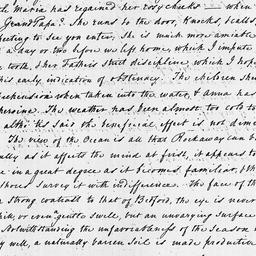 Maria has regained her rosy cheeks — when
Grand Papa? She runs to the door, Knocks, calls,
pecting to see you enter. She is much more amiable
a day or two before we left home which I impute
tooth, her Father's strict discipline, which I hope
his early indication of obstinacy. The children shew
apprehension when taken into the water, & Anna has
heroine. The weather has been almost too cold to
altho' tis said the beneficial effect is not dimi
The view of the Ocean is all that Rockaway can b
ally as it affects the mind at first, it appears to
e in a great degree as it becomes familiar, & th
shores survey it with indifference. The face of th
strong contrast to that of Bedford, the eye is never
hill, or even gentle swell, but an unvarying surface
Notwithstanding the unfavorableness of the season
ry well, a naturally barren soil is made productive